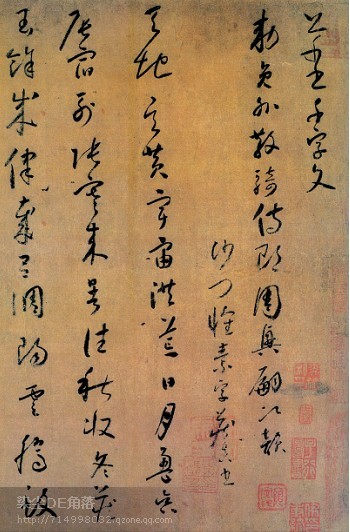 千字文
敕員外散騎侍郎周興嗣次韻
沙門懷素字藏真書
天地玄黃宇宙洪荒日月盈昃
辰宿列張寒來暑往秋收冬藏
閏餘成律歲呂調陽雲騰致
染尘DE角落
http://714998032.qzone.qq.com